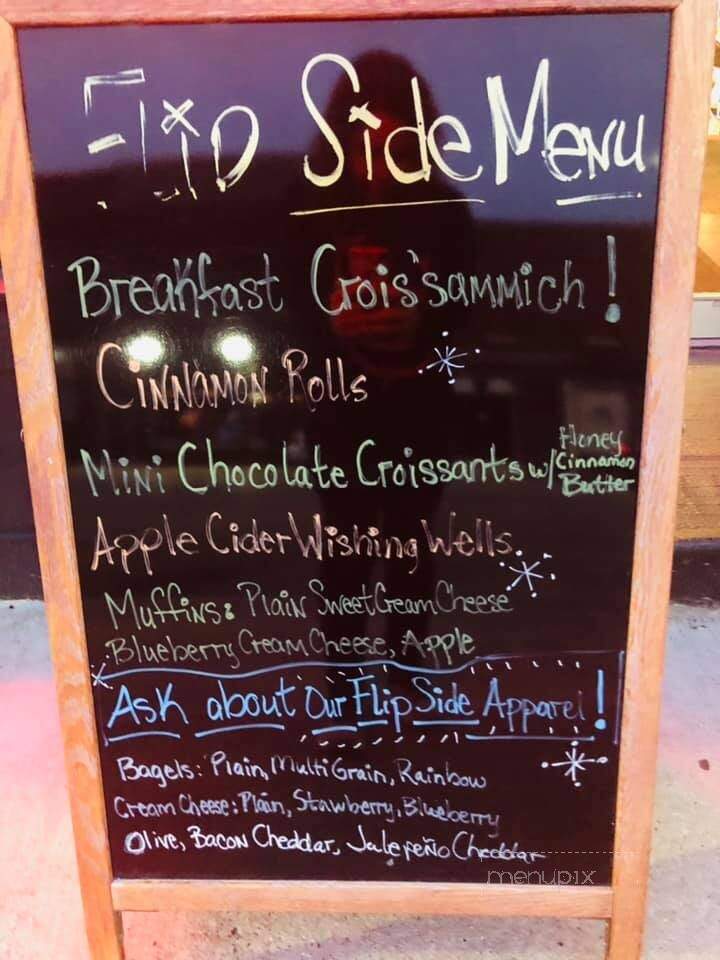 Flip Side Menu
Breakfast Crois'sammich!
Cinnamon Rolls
Mini Chocolate Croissants w/ Honey Cinnamon Butter
Apple Cider Wishing Wells
Muffins: Plain Sweet Cream Cheese
Blueberry Cream Cheese, Apple
Ask about our Flip Side Apparel!
Bagels: Plain, Multi Grain, Rainbow
Cream Cheese: Plain, Stawberry, Blueberry
Olive, Bacon Cheddar, Jalepeño Cheddar
menupix